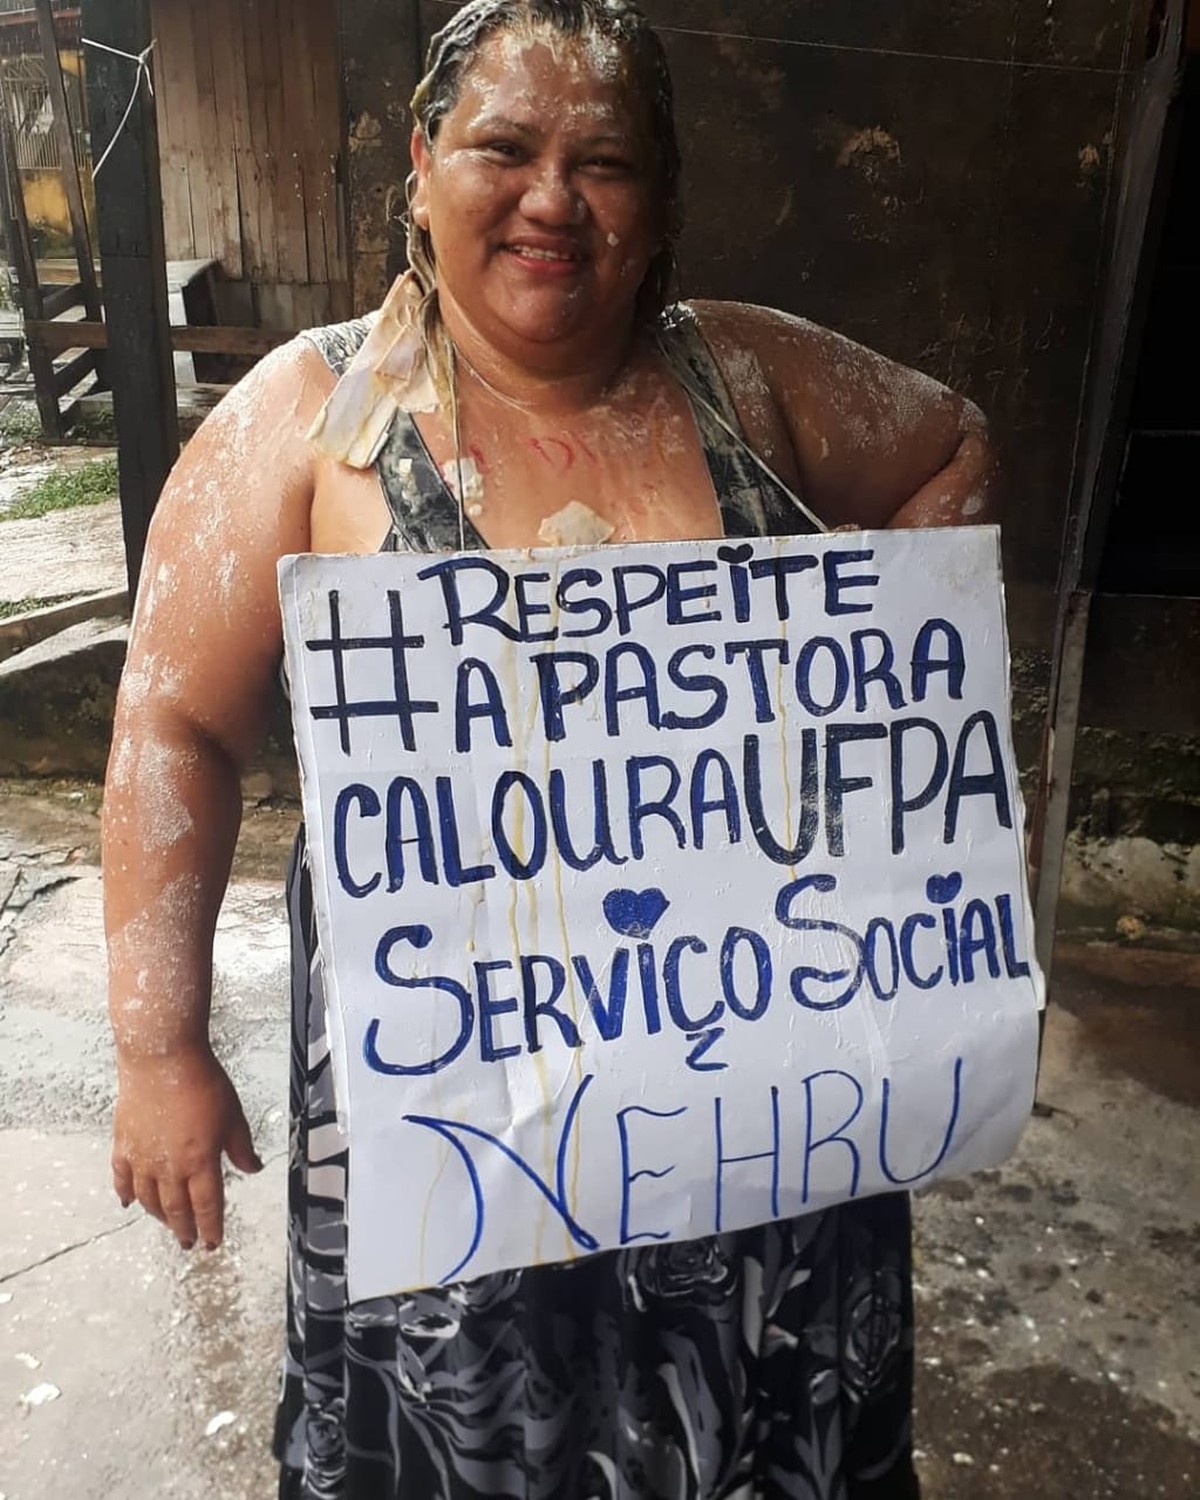 #RESPEITE
A PASTORA
CALOURA UFPA
SERVIÇO SOCIAL
NEHRU